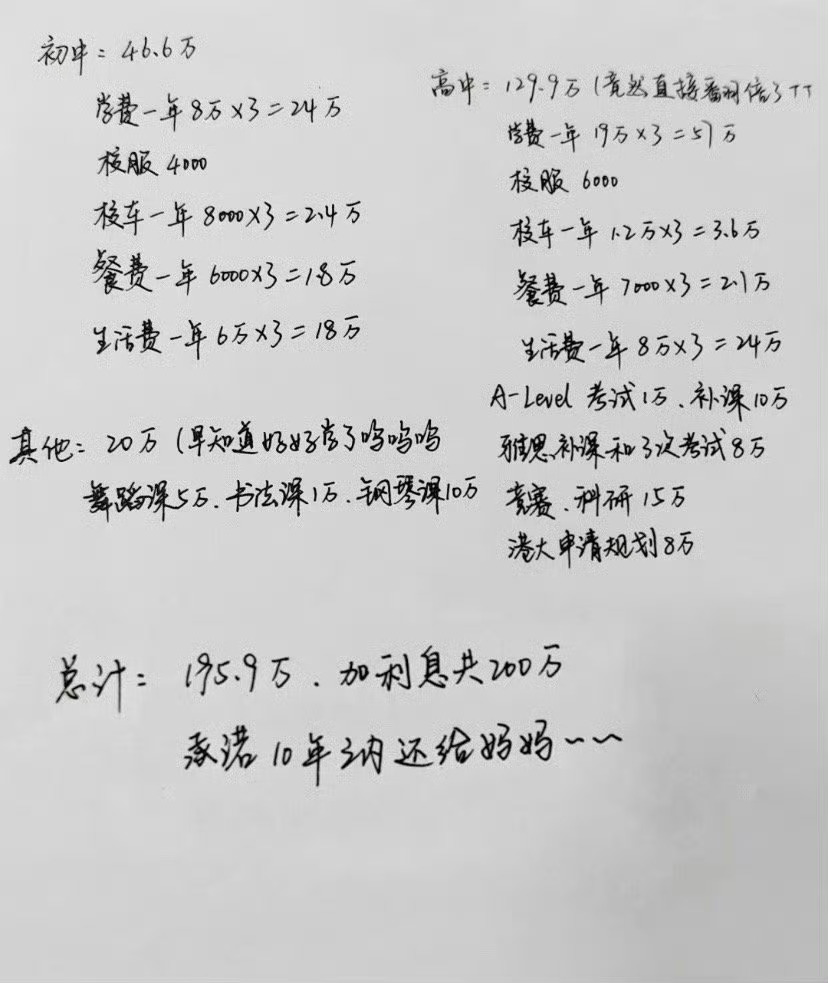 初中：46.6万
学费一年8万×3=24万
校服4000
校车一年8000×3=2.4万
餐费一年6000×3=1.8万
生活费一年6万×3=18万
其他：20万（早知道好好学了呜呜呜
舞蹈课5万、书法课1万、钢琴课10万
高中：129.9万（竟然直接翻两倍了TT
学费一年19万×3=57万
校服6000
校车一年1.2万×3=3.6万
餐费一年7000×3=2.1万
生活费一年8万×3=24万
A-Level考试1万、补课10万
雅思补课和3次考试8万
竞赛、科研15万
港大申请规划8万
总计：195.9万、加利息共200万
承诺10年之内还给妈妈~~